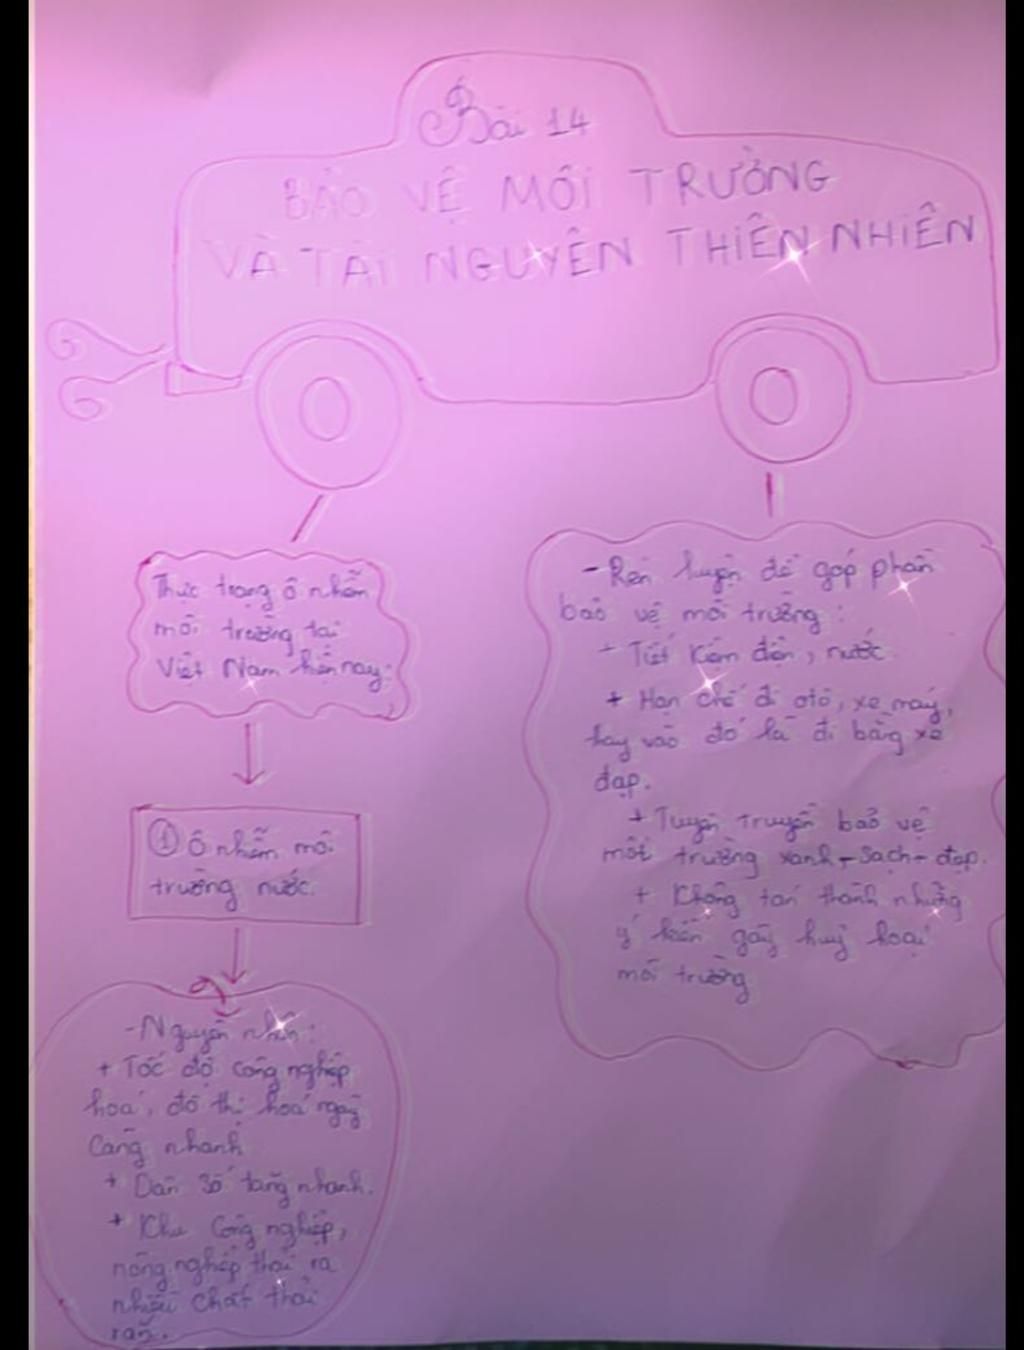 Bài 14
BẢO VỆ MÔI TRƯỜNG
VÀ TÀI NGUYÊN THIÊN NHIÊN
Thực trạng ô nhiễm
môi trường tại
Việt Nam hiện nay:
① Ô nhiễm môi
trường nước.
- Nguyên nhân:
+ Tốc độ công nghiệp
hoá, đô thị hoá ngày
càng nhanh
+ Dân số tăng nhanh.
+ Khu công nghiệp,
nông nghiệp thải ra
nhiều chất thải
rắn.
- Rèn luyện để góp phần
bảo vệ môi trường:
+ Tiết kiệm điện, nước.
+ Hạn chế đi otô, xe máy,
thay vào đó là đi bằng xe
đạp.
+ Tuyên truyền bảo vệ
môi trường xanh - sạch - đẹp.
+ Không tán thành những
ý kiến gây huỷ hoại
môi trường